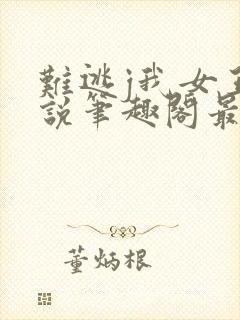 難逃j我 女主
說筆趣閣最
董炳根